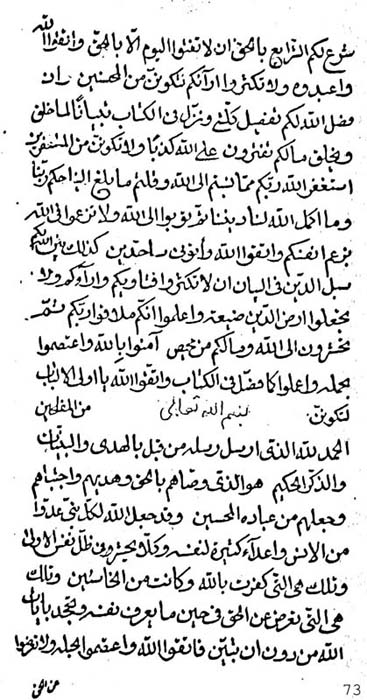 شرع لكم الشرايع بالحق ان لا تفتوا اليوم الّا بالحق واتقوا الله
واعبدوه ولا تكثروا ارآئكم لتكوننّ من المحسنين وان
فضل الله لكم تفصيل كلّشئ ونزّل فى الكتاب تبيانًا لما خلق
ويخلق مالكم تفترون على الله كذبًا ولا تكوننّ من المستغفرين
استغفر الله ربّكم ممّا نسبتم الى الله وقلتم ما بلغ الينا حكم ربّنا
وما اكمل الله لنا ديننا ثم توبوا الى الله ولا تزعموا فى الله
بزعم انفسكم واتقوا الله وأتونى ساجدين كذلك يبيّن الله لكم
سبل الدّين فى البيان ان لا تكثروا فتاويكم وارآءكم ولا
تجعلوا ارض الدّين ضيعة واعلموا انّكم ملاقوا ربّكم ثمّ
تحشرون الى الله ومالكم من محيص آمنوا بالله واعتصموا
بحبله واعملوا كما فصّل فى الكتاب واتقوا الله يا اولى الالباب
لتكوننّ من المفلحين
بسم الله تعالى
الحمد لله الذى ارسل رسله من قبل بالهدى والبيّنات
والذكر الحكيم هو الذى وصّاهم بالحق وهديهم واجتباهم
وجعلهم من عباده المحسنين وقد جعل الله لكلّ نبىّ عدوّا
من الانس واعدآء كثيرة لنفسه وكلّا يحشرون فى ظلّ نفس الاولى
وتلك هى التى كفرت بالله وكانت من الخاسئين وتلك
هى التى تعرض عن الحق فى حين ما يعرف نفسه وتجحد بايات
الله من دون ان تبيّن فاتقوا الله واعتصموا بحبله ولا تفرّقوا
عن الحق
73